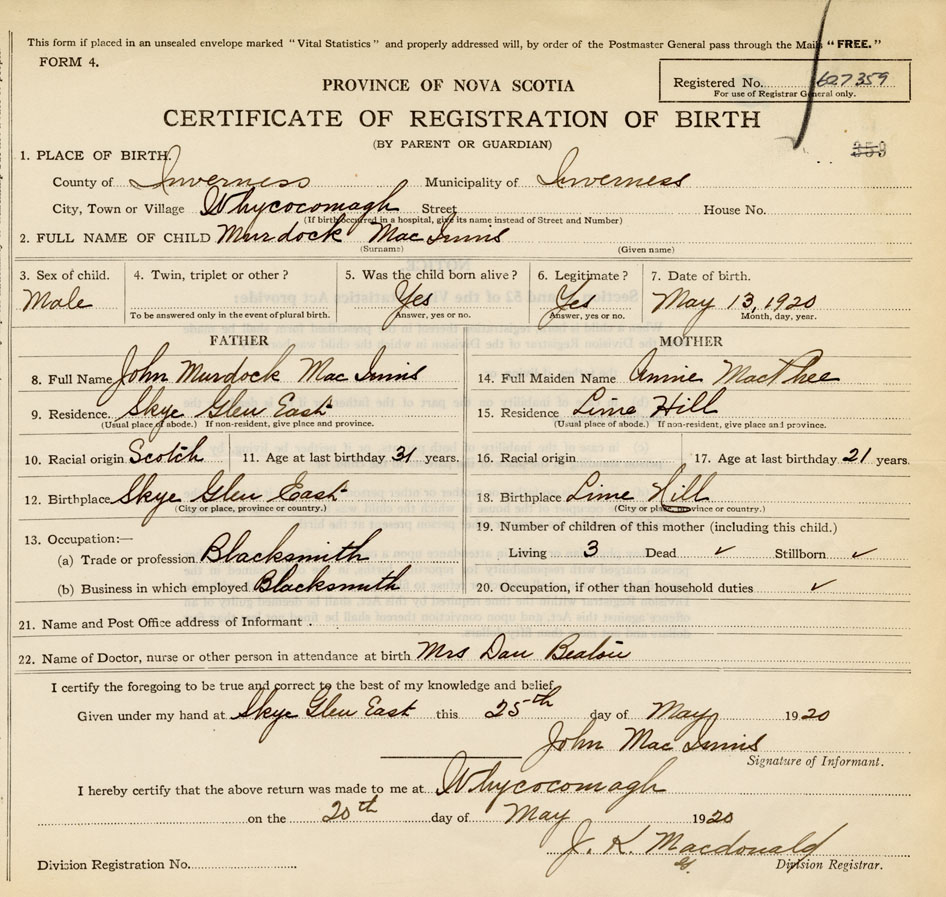 This form if placed in an unsealed envelope marked "Vital Statistics" and properly addressed will, by order of the Postmaster General pass through the Mails "FREE."
FORM 4.
Registered No. 627359
For use of Registrar General only.
PROVINCE OF NOVA SCOTIA
CERTIFICATE OF REGISTRATION OF BIRTH
(BY PARENT OR GUARDIAN)
359
1. PLACE OF BIRTH.
County of Inverness Municipality of Inverness
City, Town or Village Whycocomagh Street House No.
(If birth occurred in a hospital, give its name instead of Street and Number)
2. FULL NAME OF CHILD Murdock Mac Innis
(Surname) (Given name)
3. Sex of child. 4. Twin, triplet or other? 5. Was the child born alive? 6. Legitimate? 7. Date of birth.
Male Yes Yes May 13, 1920
To be answered only in the event of plural birth. Answer, yes or no. Answer, yes or no. Month, day, year.
FATHER
8. Full Name John Murdock Mac Innis
9. Residence. Skye Glen East
(Usual place of abode.) If non-resident, give place and province.
10. Racial origin Scotch 11. Age at last birthday 31 years.
12. Birthplace Skye Glen East
(City or place, province or country.)
13. Occupation:—
(a) Trade or profession Blacksmith
(b) Business in which employed Blacksmith
MOTHER
14. Full Maiden Name Annie MacPhee
15. Residence Lime Hill
(Usual place of abode.) If non-resident, give place and province.
16. Racial origin 17. Age at last birthday 21 years.
18. Birthplace Lime Hill
(City or place, province or country.)
19. Number of children of this mother (including this child.)
Living 3 Dead ✓ Stillborn ✓
20. Occupation, if other than household duties ✓
21. Name and Post Office address of Informant .
22. Name of Doctor, nurse or other person in attendance at birth Mrs Dan Beaton
I certify the foregoing to be true and correct to the best of my knowledge and belief.
Given under my hand at Skye Glen East this 25th day of May 1920
John Mac Innis
Signature of Informant.
I hereby certify that the above return was made to me at Whycocomagh
on the 20th day of May 1920
J. K. Macdonald
Division Registrar.
Division Registration No.